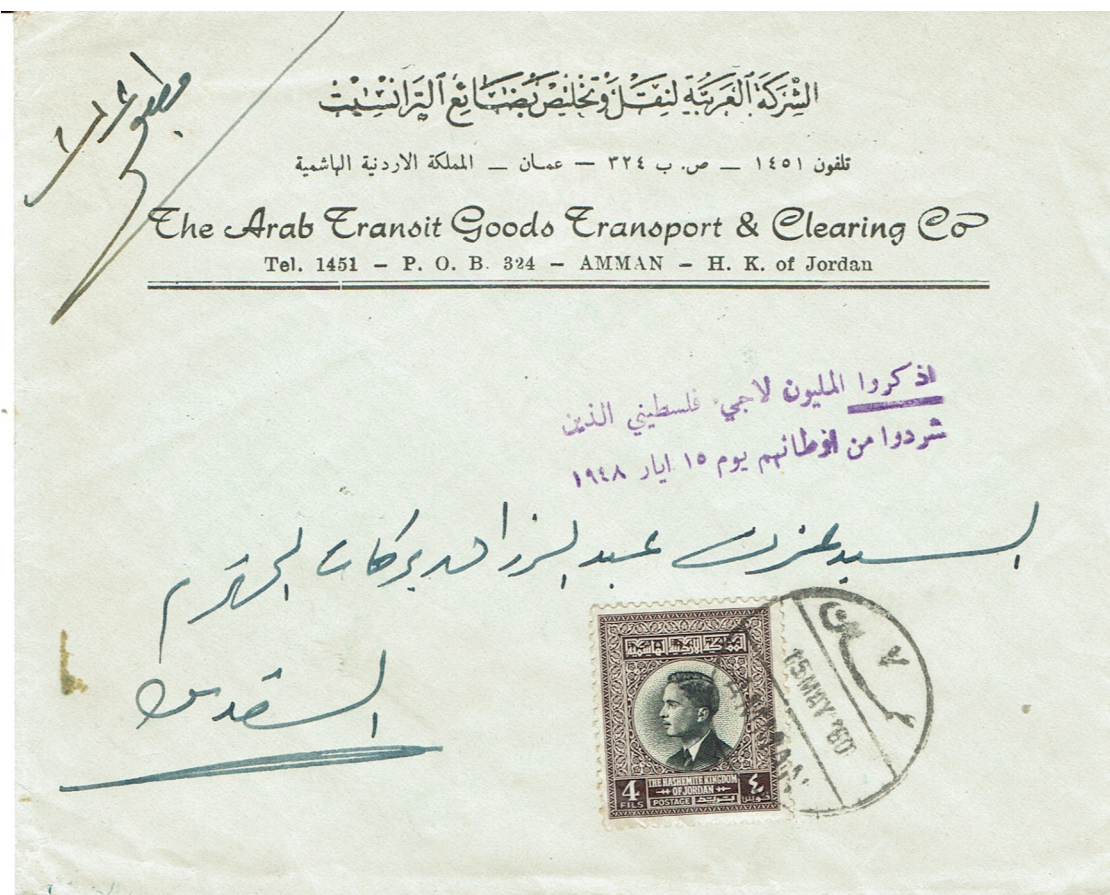 الشركة العربية لنقل وتخليص بضائع الترانسيت
تلفون ١٤٥١ – ص. ب ٣٢٤ – عمان – المملكة الاردنية الهاشمية
The Arab Transit Goods Transport & Clearing Co
Tel. 1451 – P. O. B. 324 – AMMAN – H. K. of Jordan
اذكروا المليون لاجيء فلسطيني الذين
شردوا من اوطانهم يوم ١٥ ايار ١٩٤٨
السيد عزت عبد الرزاق بركات المحترم
القدس
المملكة الاردنية الهاشمية
THE HASHEMITE KINGDOM
OF JORDAN
4 FILS POSTAGE بريد ٤ فلس
٧
15 MAY '60
AMMAN